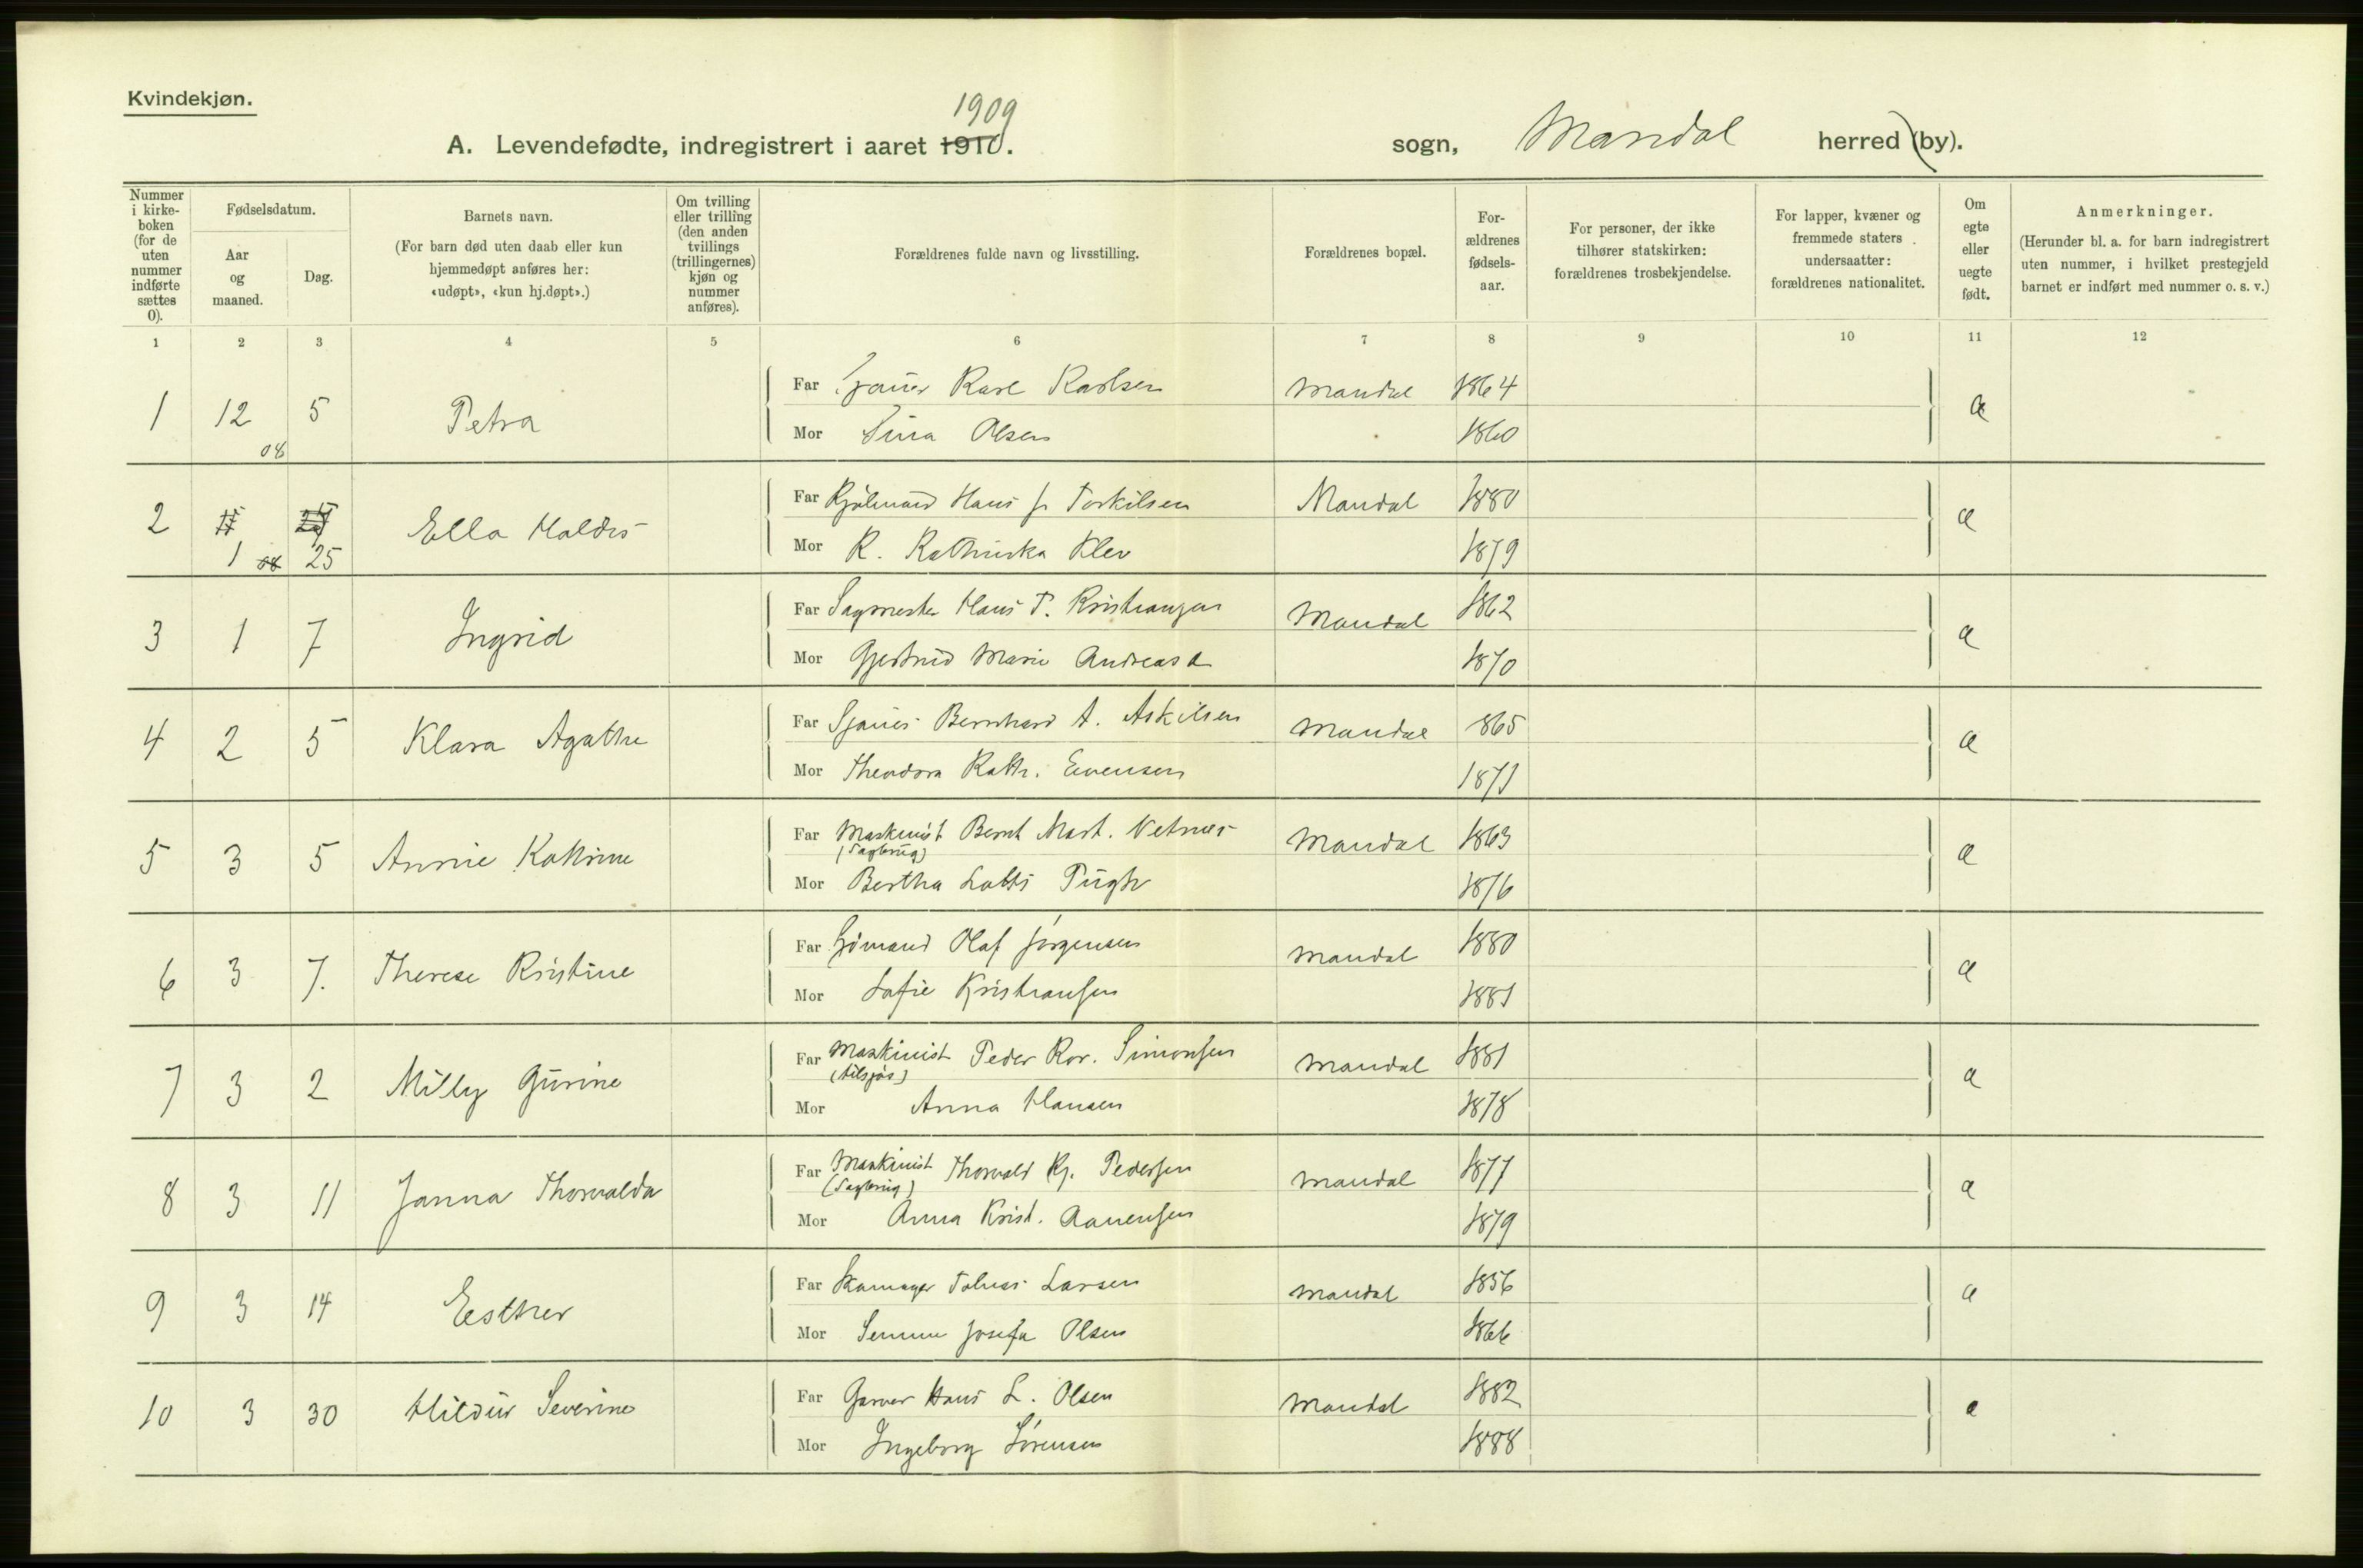 Kvindekjøn.
1909
A. Levendefødte, indregistrert i aaret 1910.
sogn, Mandal herred (by).
Nummer i kirke-boken (for de uten nummer indførte sættes 0).
Fødselsdatum.
Aar og maaned.
Dag.
Barnets navn.
(For barn død uten daab eller kun hjemmedøpt anføres her: «udøpt», «kun hj.døpt».)
Om tvilling eller trilling (den anden tvillings (trillingernes) kjøn og nummer anføres).
Forældrenes fulde navn og livsstilling.
Forældrenes bopæl.
For-ældrenes fødsels-aar.
For personer, der ikke tilhører statskirken: forældrenes trosbekjendelse.
For lapper, kvæner og fremmede staters undersaatter: forældrenes nationalitet.
Om egte eller uegte født.
Anmerkninger.
(Herunder bl. a. for barn indregistrert uten nummer, i hvilket prestegjeld barnet er indført med nummer o. s. v.)
1 2 3 4 5 6 7 8 9 10 11 12
Far Karl Karlsen Mandal 1864
1 12 08 5 Petra
Mor Sina Olsen 1860
Far Hans Torkilsen Mandal 1880
2 1 25 Ella Haldis
Mor K. Kathinka Klev 1879
Far Sagmester Hans T. Kristiansen Mandal 1862
3 1 7 Ingrid
Mor Gjertrud Marie 1870
Far Bernhard A. Askilsen Mandal 865
4 2 5 Klara Agathe
Mor Theodora Kath. Evensen 1871
Far Maskinist Bernt Mart. Mandal 1863
(Sagbrug)
5 3 5 Annie Katrine
Mor Bertha 1876
Far Sjømand Olaf Jørgensen Mandal 1880
6 3 7. Therese Kristine
Mor Sofie Kristiansen 1881
Far Maskinist Peder Kor. Simonsen Mandal 1881
(tilsjøs)
7 3 2 Milly Gurine
Mor Anna Hansen 1878
Far Maskinist Thorvald Kr. Pedersen Mandal 1877
(Sagbrug)
8 3 11 Janna Thorvalda
Mor Anna Krist. Aanensen 1879
Far Larsen Mandal 1856
9 3 14 Eesther
Mor Josefa Olsen 1866
Far Garver Hans L. Olsen Mandal 1882
10 3 30 Hildur Severine
Mor Ingeborg Sørensen 1888